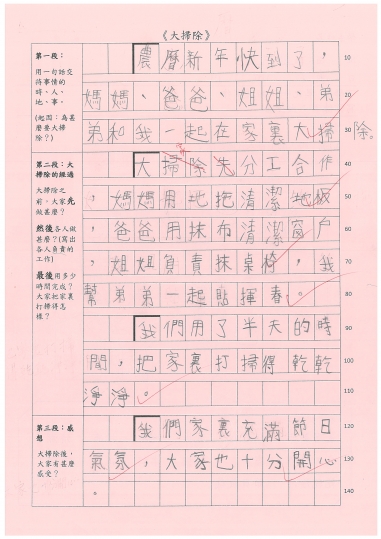 《大掃除》
第一段：
用一句話交
待事情的
時、人、
地、事。
(起因：爲甚
麼要大掃
除？)
農曆新年快到了， 10
媽媽、爸爸、姐姐、弟 20
弟和我一起在家裏大掃除。 30
第二段：大
掃除的經過
大掃除之
前，大家先
做甚麼？
然後各人做
甚麼？(寫出
各人負責的
工作)
最後用多少
時間完成？
大家把家裏
打掃得怎
樣？
大掃除先分工合作 40
，媽媽用地拖清潔地板 50
，爸爸用抹布清潔窗户 60
，姐姐負責抹桌椅，我 70
幫弟弟一起貼揮春。 80
我們用了半天的時 90
間，把家裏打掃得乾乾 100
淨淨。 110
第三段：感
想
大掃除後，
大家有甚麼
感受？
我們家裏充滿節日 120
氣氛，大家也十分開心 130
。 140